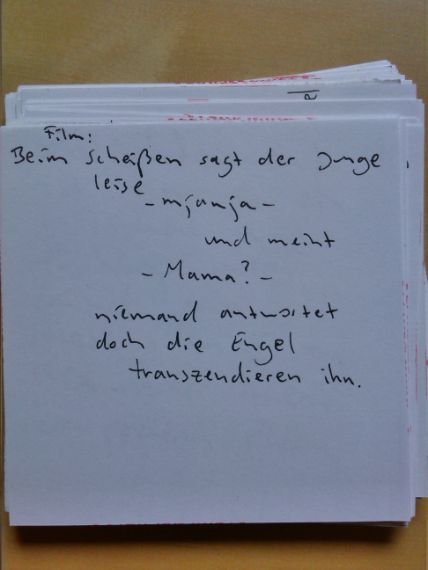 Film:
Beim scheißen sagt der Junge
leise
- mjanja -
und meint
- Mama? -
niemand antwortet
doch die Engel
transzendieren ihn.